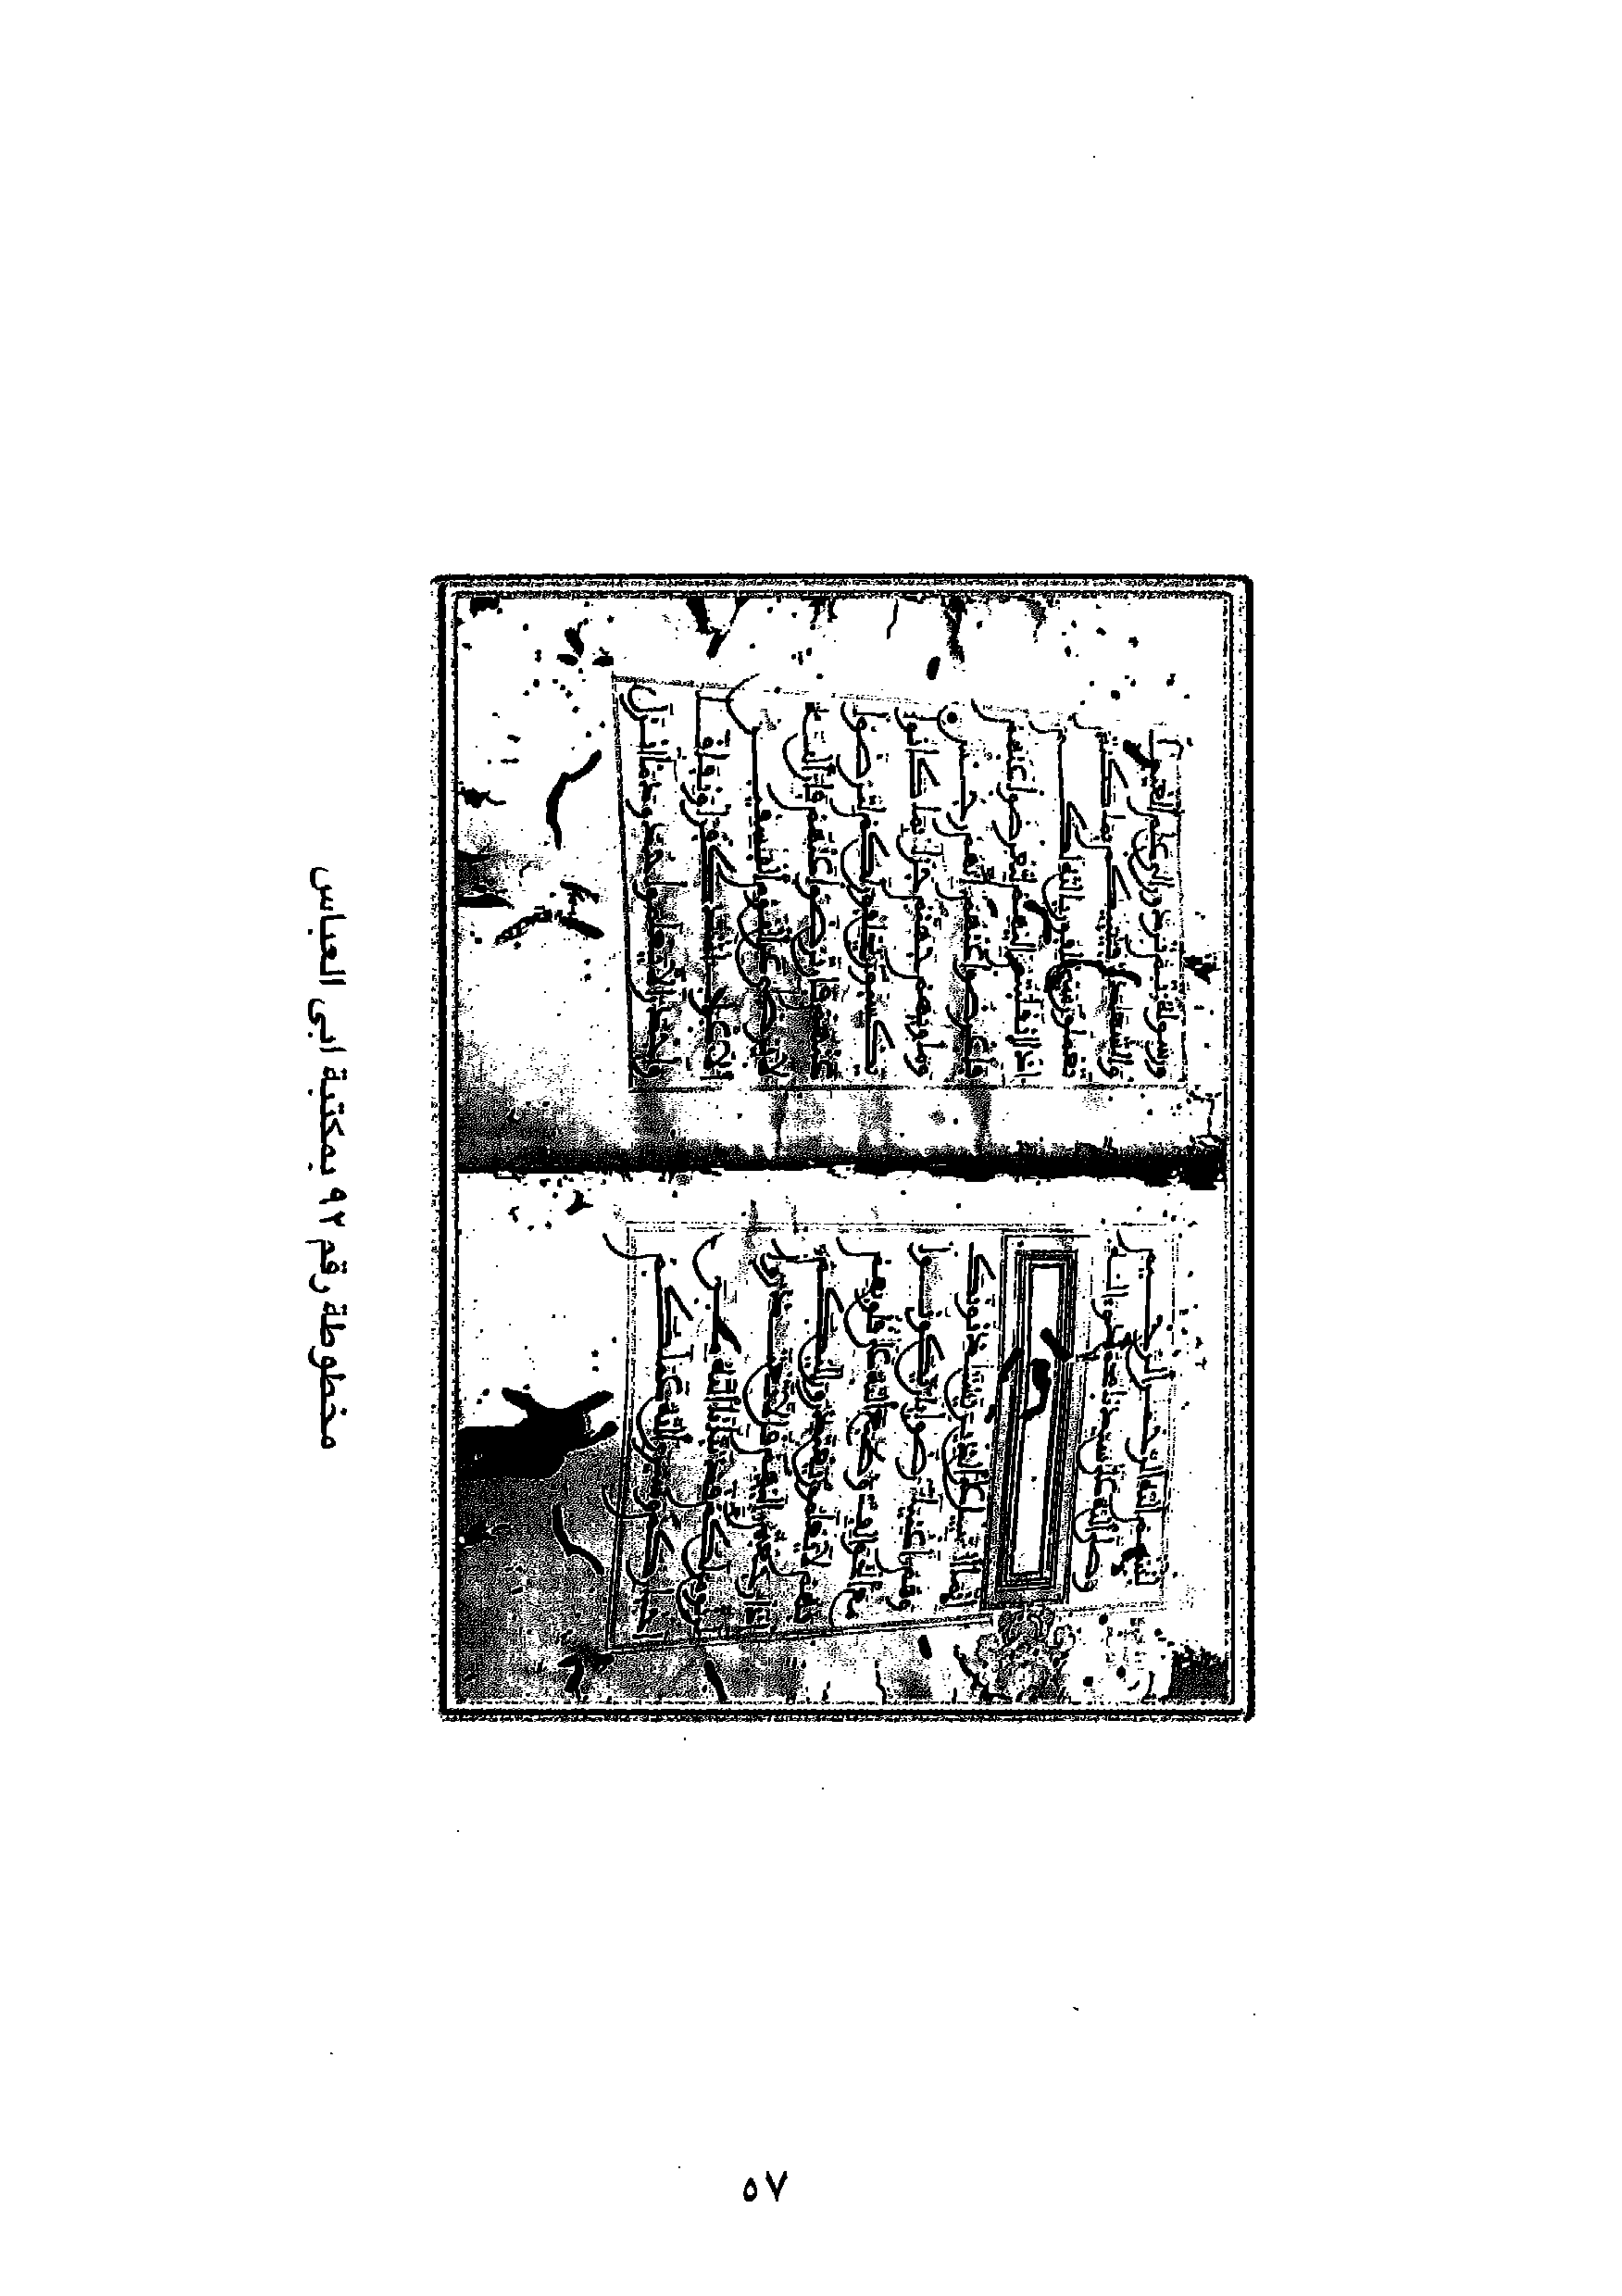 انما السبيل على الذين يستاذنونك
وهم اغنياء رضوا بان يكونوا
مع الخوالف وطبع الله على قلوبهم
فهم لا يعلمون يعتذرون اليكم
اذا رجعتم اليهم قل لا تعتذروا لن
نومن لكم قد نبانا الله من
اخباركم وسيرى الله عملكم
ورسوله ثم تردون الى علم الغيب
والشهادة فينبئكم بما كنتم
تعملون سيحلفون بالله لكم
اذا انقلبتم اليهم لتعرضوا عنهم
فاعرضوا عنهم انهم رجس
وماويهم جهنم جزاء بما كانوا
يكسبون يحلفون لكم لترضوا
عنهم فان ترضوا عنهم فان الله
لا يرضى عن القوم الفسقين
الاعراب اشد كفرا ونفاقا
واجدر الا يعلموا حدود ما انزل
مخطوطة رقم ٩٢ بمكتبة ابى العباس
٥٧